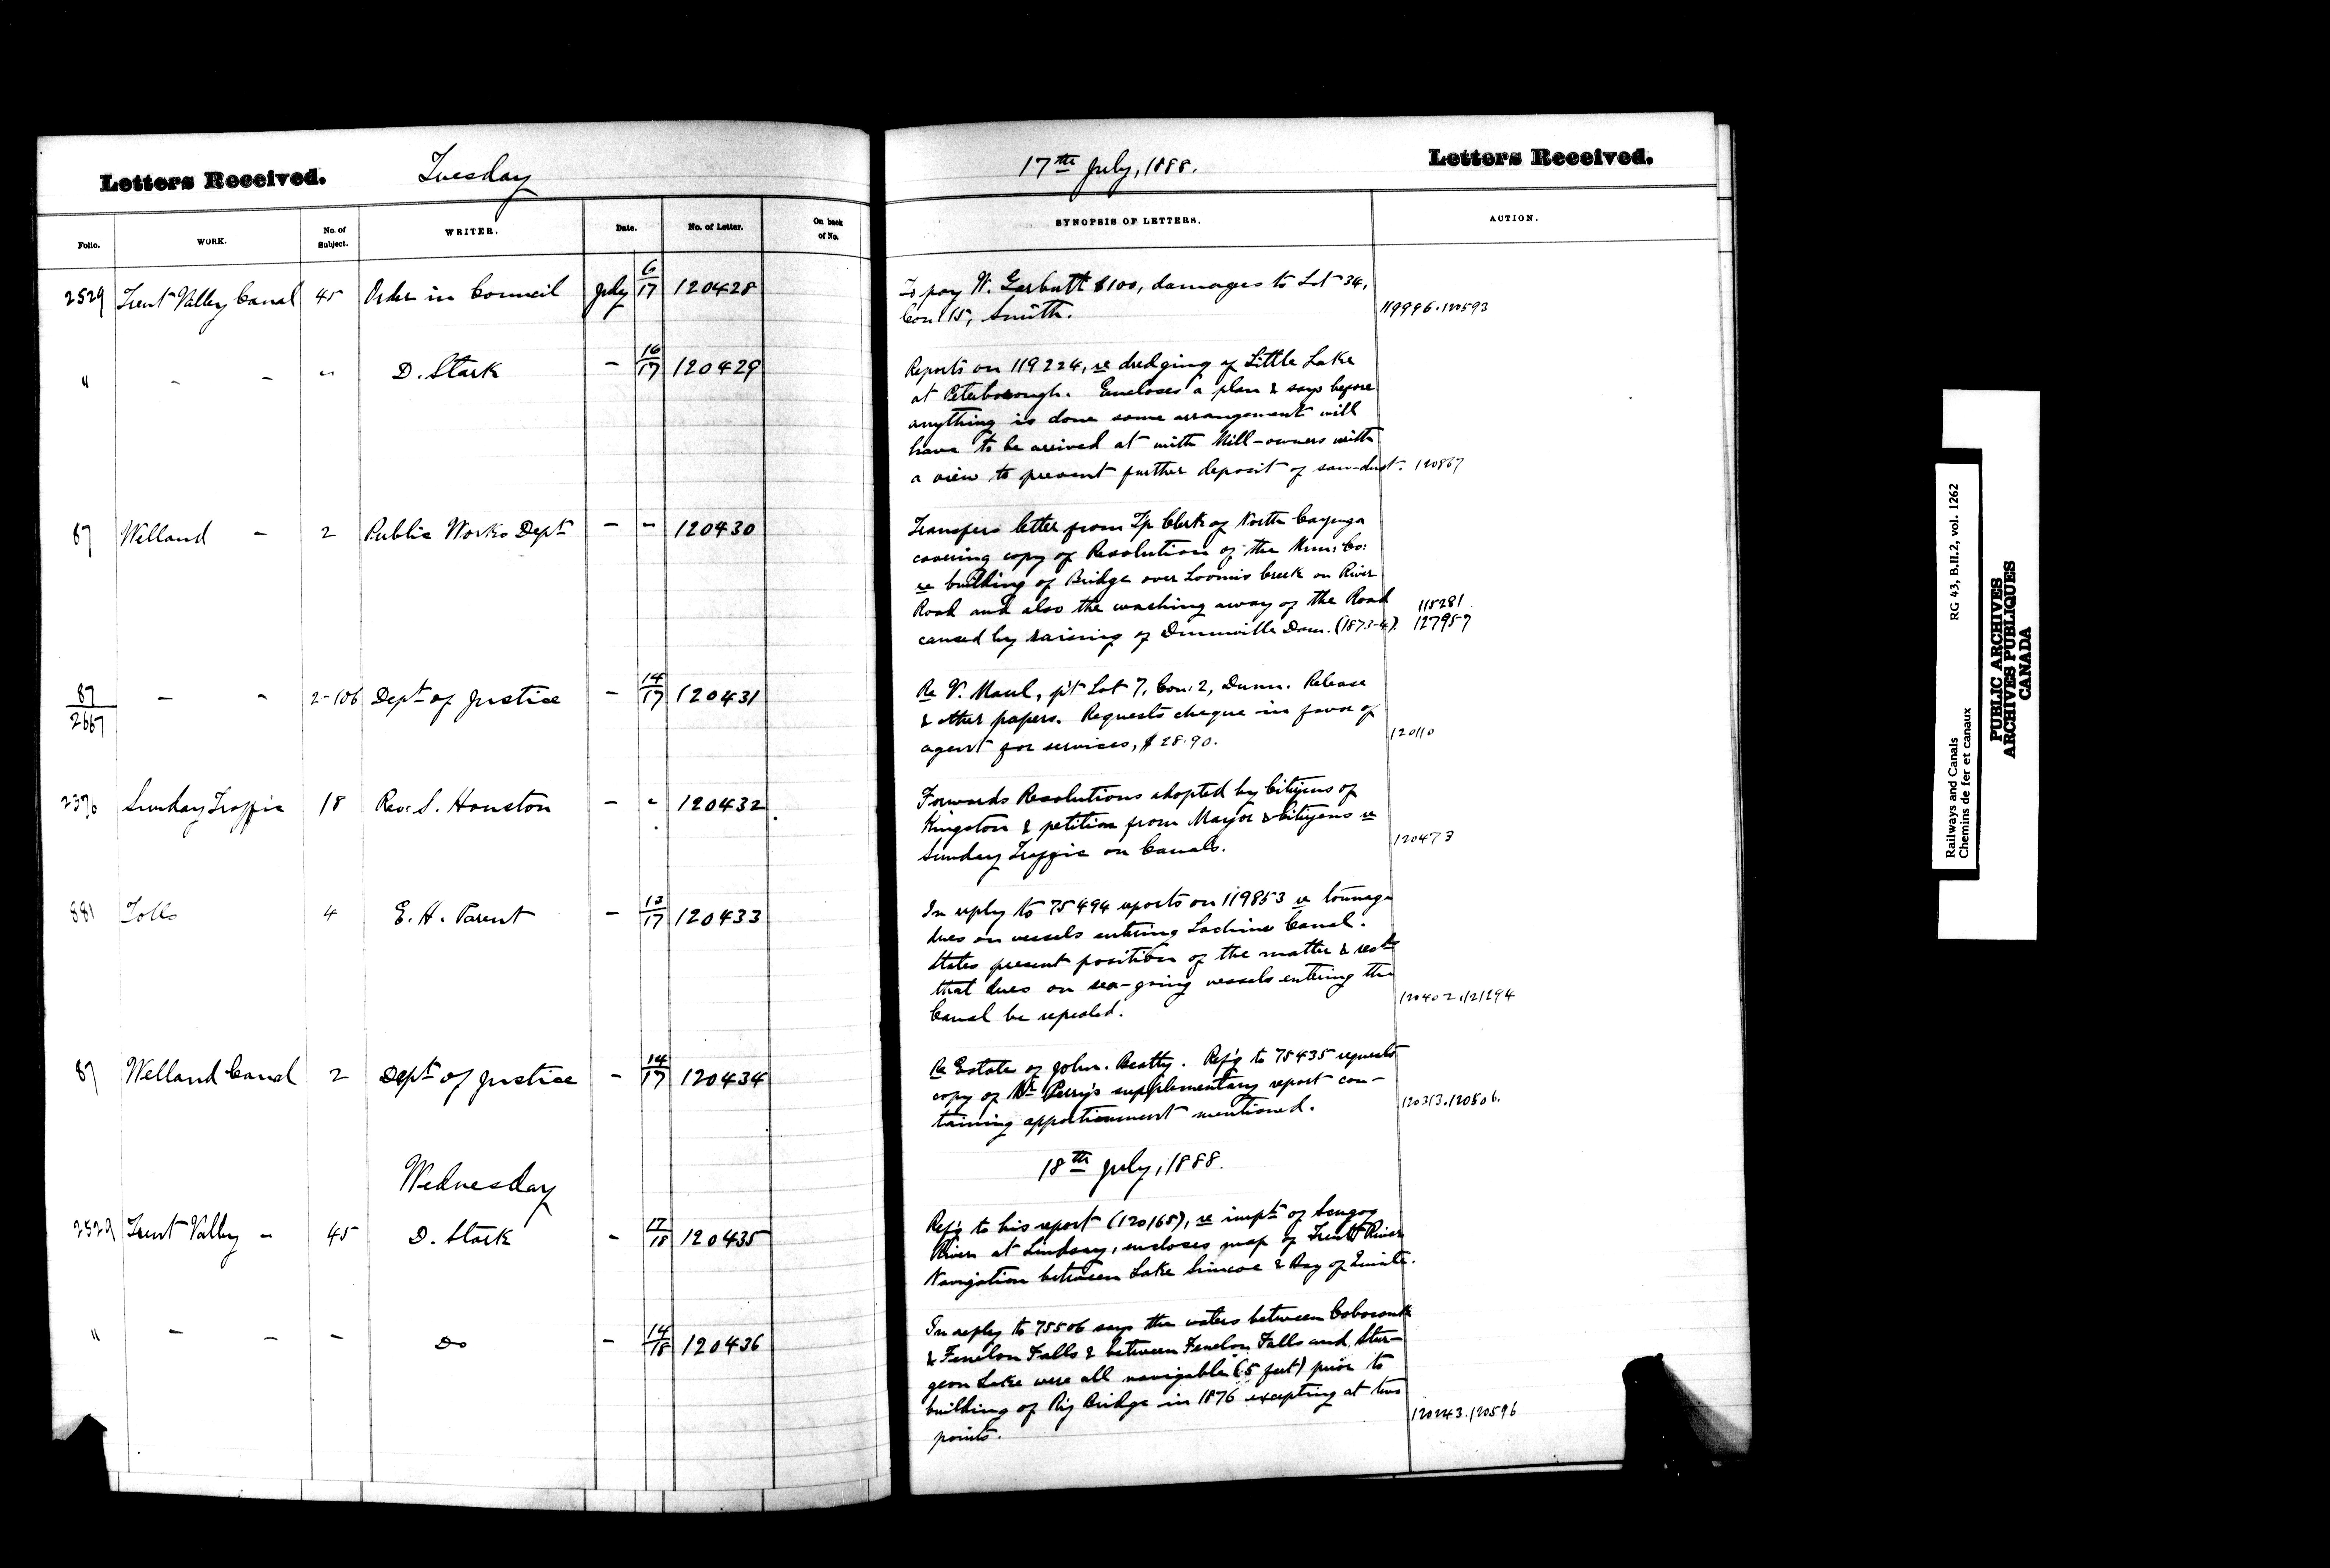 Letters Received. Tuesday
17th July, 1888. Letters Received.
Folio. WORK. No. of Subject. WRITER. Date. No. of Letter. On back of No. SYNOPSIS OF LETTERS. ACTION.
2529 Trent Valley Canal 45 Order in Council July 6/17 120428
To pay W. Garbutt $100, damages to Lot 34,
Con 15, Smith. 119996.120593
" - - " D. Stark - 16/17 120429
Reports on 119224, re dredging of Little Lake
at Peterborough. Encloses a plan & says before
anything is done some arrangement will
have to be arrived at with Mill-owners with
a view to prevent further deposit of saw-dust. 120867
87 Welland - 2 Public Works Dept - - 120430
Transfers letter from Tp Clerk of North Cayuga
covering copy of Resolution of the Mun: Co:
re building of Bridge over Loomis Creek on River
Road and also the washing away of the Road 115281
caused by raising of Dunnville Dam. (1873-4). 127957
87/2667 - - 2-106 Dept of Justice - 14/17 120431
Re V. Maul, p't Lot 7, Con: 2, Dunn. Release
& other papers. Requests cheque in favor of
agent for services, $28.90. 120110
2370 Sunday Traffic 18 Rev. S. Houston - " 120432
Forwards Resolutions adopted by Citizens of
Kingston & petition from Mayor & Citizens re
Sunday Traffic on Canals. 120473
881 Tolls 4 E. H. Parent - 13/17 120433
In reply to 75494 reports on 119853 re tonnage
dues on vessels entering Lachine Canal.
States present position of the matter & recds
that dues on sea-going vessels entering the
Canal be repealed. 120402.121294
87 Welland Canal 2 Dept of Justice - 14/17 120434
Re Estate of John Beatty. Ref'g to 75435 requests
copy of Mr Perry's supplementary report con-
taining apportionment mentioned. 120313.120506.
Wednesday 18th July, 1888.
2529 Trent Valley - 45 D. Stark - 17/18 120435
Ref'g to his report (120165), re impt of Scugog
River at Lindsay, encloses map of Trent River
Navigation between Lake Simcoe & Bay of Quinte.
" - - - Do - 14/18 120436
In reply to 75506 says the waters between Coboconk
& Fenelon Falls & between Fenelon Falls and Stur-
geon Lake were all navigable (5 feet) prior to
building of Ry Bridge in 1876 excepting at two
points. 120243.120596
RG 43, B.II.2, vol. 1262
Railways and Canals
Chemins de fer et canaux
PUBLIC ARCHIVES
ARCHIVES PUBLIQUES
CANADA